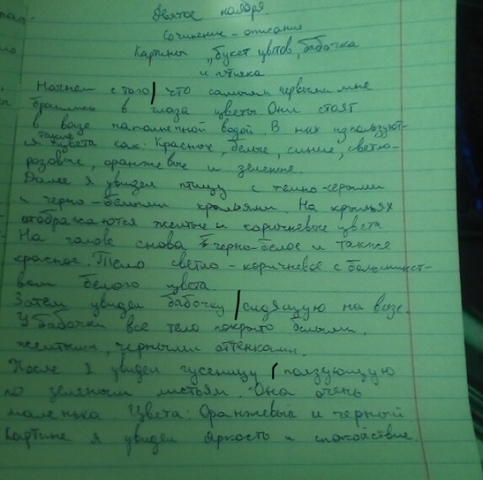 Девятое ноября
Сочинение - описание
Картины „букет цветов, бабочка
и птичка
Начнем с того, что самыми первыми мне
бросились в глаза цветы. Они стоят
в вазе наполненой водой. В них используют-
ся такие цвета как: Красные, белые, синие, светло-
розовые, оранжевые и зеленые.
Далее я увидел птицу с темно-серыми
и черно-белыми крыльями. На крыльях
отображаются желтые и коричневые цвета
На голове снова черно-белое и также
красное. Тело светло-коричневое с большинст-
вом белого цвета.
Затем увидел бабочку, сидящую на вазе.
У бабочки все тело покрыто белыми,
желтыми, черными оттенками.
После я увидел гусеницу, ползующую
по зеленым листьям. Она очень
маленька Цвета: Оранжевый и черный
Картине я увидел яркость и спокойствие.